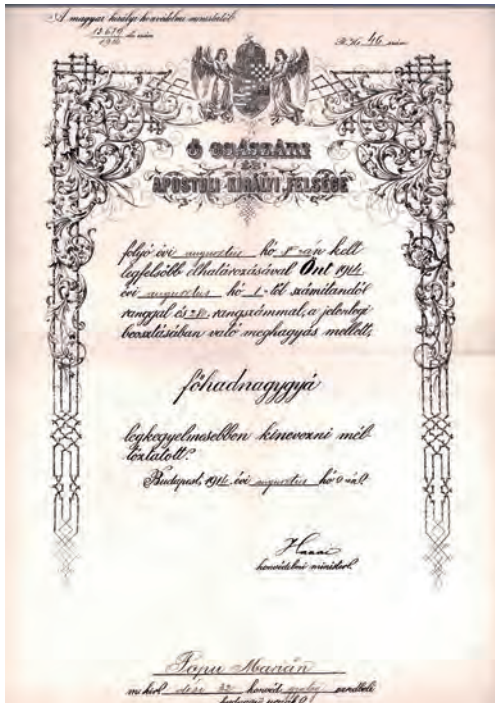 A magyar királyi honvédelmi ministertől
1914
46 szám
Ő császári
és
apostoli királyi Felsége
folyó évi augusztus hó án kelt
legfelsőbb elhatározásával Önt 1914
évi augusztus hó 1-től számítandó
ranggal és rangszámmal, a jelenlegi
beosztásában való meghagyás mellett,
főhadnagygyá
legkegyelmesebben kinevezni mél-
tóztatott.
Budapest, 1914 évi augusztus hó
honvédelmi minister.
Pópu Marián
m. kir. dési 32 honvéd gyalog ezredbeli
hadnagy